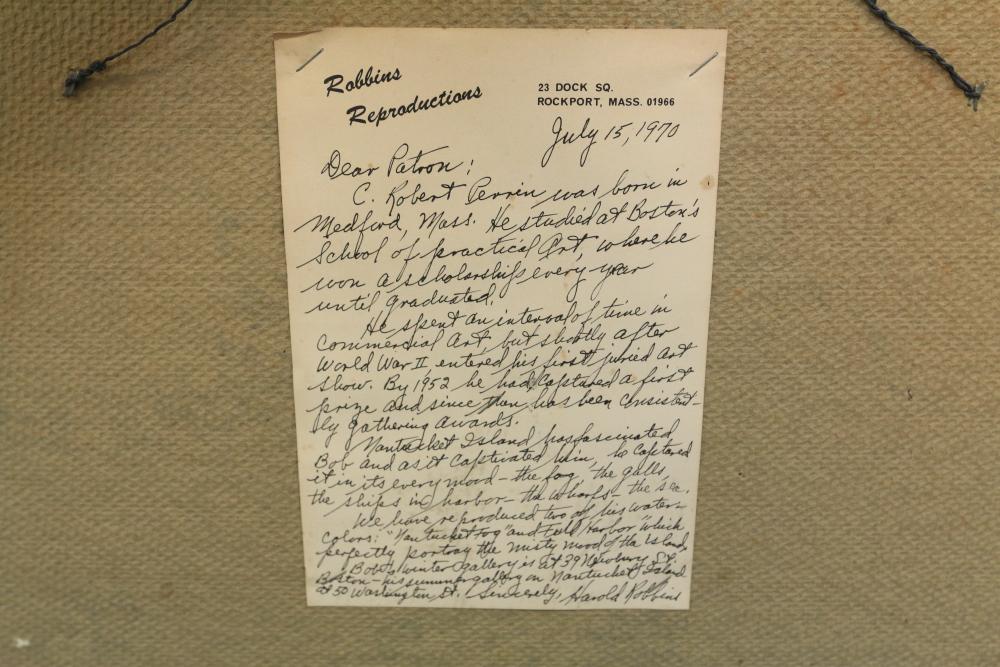 Robbins
Reproductions
23 DOCK SQ.
ROCKPORT, MASS. 01966
July 15, 1970
Dear Patron:
C. Robert Perrin was born in
Medford, Mass. He studied at Boston's
School of practical Art, where he
won a scholarship every year
until graduated.
He spent an interval of time in
Commercial Art, but shortly after
World War II, entered his first juried art
show. By 1952 he had captured a first
prize and since then has been consistent-
ly gathering awards.
Nantucket Island has fascinated
Bob and as it captivated him, he captured
it in its every mood - the fog, the gulls,
the ships in harbor - the wharfs - the sea.
We have reproduced two of his water-
colors: "Nantucket Fog" and Harbor" which
perfectly portray the misty mood of the island.
Bob's winter gallery is at 39 Newbury St.
Boston - his summer gallery on Nantucket Island
at 50 Washington St. Sincerely, Harold Robbins